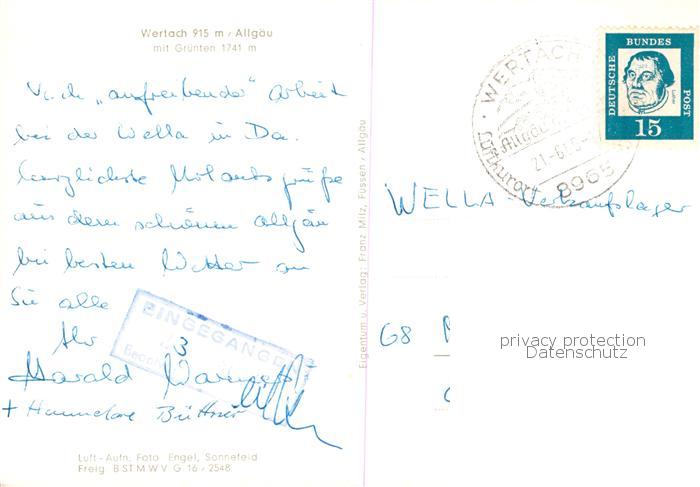 Wertach 915 m / Allgäu
mit Grünten 1741 m
Nach „aufreibender" Arbeit
bei der Wella in Da.
herzlichste Urlaubsgrüße
aus dem schönen Allgäu
bei bestem Wetter an
Sie alle
Ihr
Harald
+ Hannelore Büttner
EINGEGANGEN
3
Luft-Aufn. Foto Engel, Sonnefeld
Freig. B.ST.M.W.V G. 16/2548
Eigentum u. Verlag: Franz Milz, Füssen / Allgäu
WERTACH
Allgäu
21.-6
Luftkurort
8965
DEUTSCHE
BUNDES
POST
Luther
15
WELLA - Verkaufslager
68
privacy protection
Datenschutz